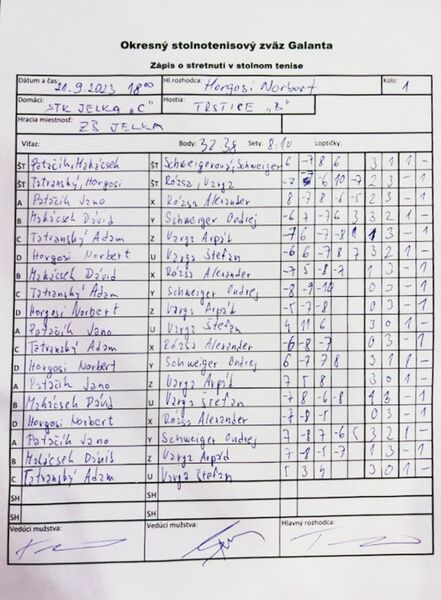 Okresný stolnotenisový zväz Galanta
Zápis o stretnutí v stolnom tenise
Dátum a čas: 21.9.2023 18⁰⁰ Hl.rozhodca: Horgosi Norbert Kolo: 1
Domáci: STK JELKA „C" Hostia: TRSTICE „B"
Hracia miestnosť: ZŠ JELKA
Víťaz: Body: Sety: 8:10 Loptičky:
ŠT Patáčik, Makácsek ŠT Schweigerová, Schweiger 6 -7 8 6 3 1 1 -
ŠT Tatranský, Horgosi ŠT Rózsa, Varga -6 10 -7 2 3 - 1
A Patáčik Jano X Rózsa Alexander 8 -7 8 -6 -5 2 3 - 1
B Makácsek Dávid Y Schweiger Ondrej -6 7 -7 6 3 3 2 1 -
C Tatranský Adam Z Varga Arpád -7 6 -7 -8 1 3 - 1
D Horgosi Norbert U Varga Štefan -6 6 -7 8 7 3 2 1 -
B Makácsek Dávid X Rózsa Alexander -7 5 -8 -7 1 3 - 1
C Tatranský Adam Y Schweiger Ondrej -8 -9 -10 0 3 - 1
D Horgosi Norbert Z Varga Arpád -5 -7 -8 0 3 - 1
A Patáčik Jano U Varga Štefan 4 11 6 3 0 1 -
C Tatranský Adam X Rózsa Alexander -6 -8 -7 0 3 - 1
D Horgosi Norbert Y Schweiger Ondrej 6 -7 7 8 3 1 1 -
A Patáčik Jano Z Varga Arpád 7 5 8 3 0 1 -
B Makácsek Dávid U Varga Štefan -7 8 -6 -8 1 3 - 1
D Horgosi Norbert X Rózsa Alexander -7 -8 -5 0 3 - 1
A Patáčik Jano Y Schweiger Ondrej 7 -8 7 -6 5 3 2 1 -
B Makácsek Dávid Z Varga Arpád 7 -8 -5 -7 1 3 - 1
C Tatranský Adam U Varga Štefan 5 3 4 3 0 1 -
SH SH
SH SH
Vedúci mužstva: Vedúci mužstva: Hlavný rozhodca: